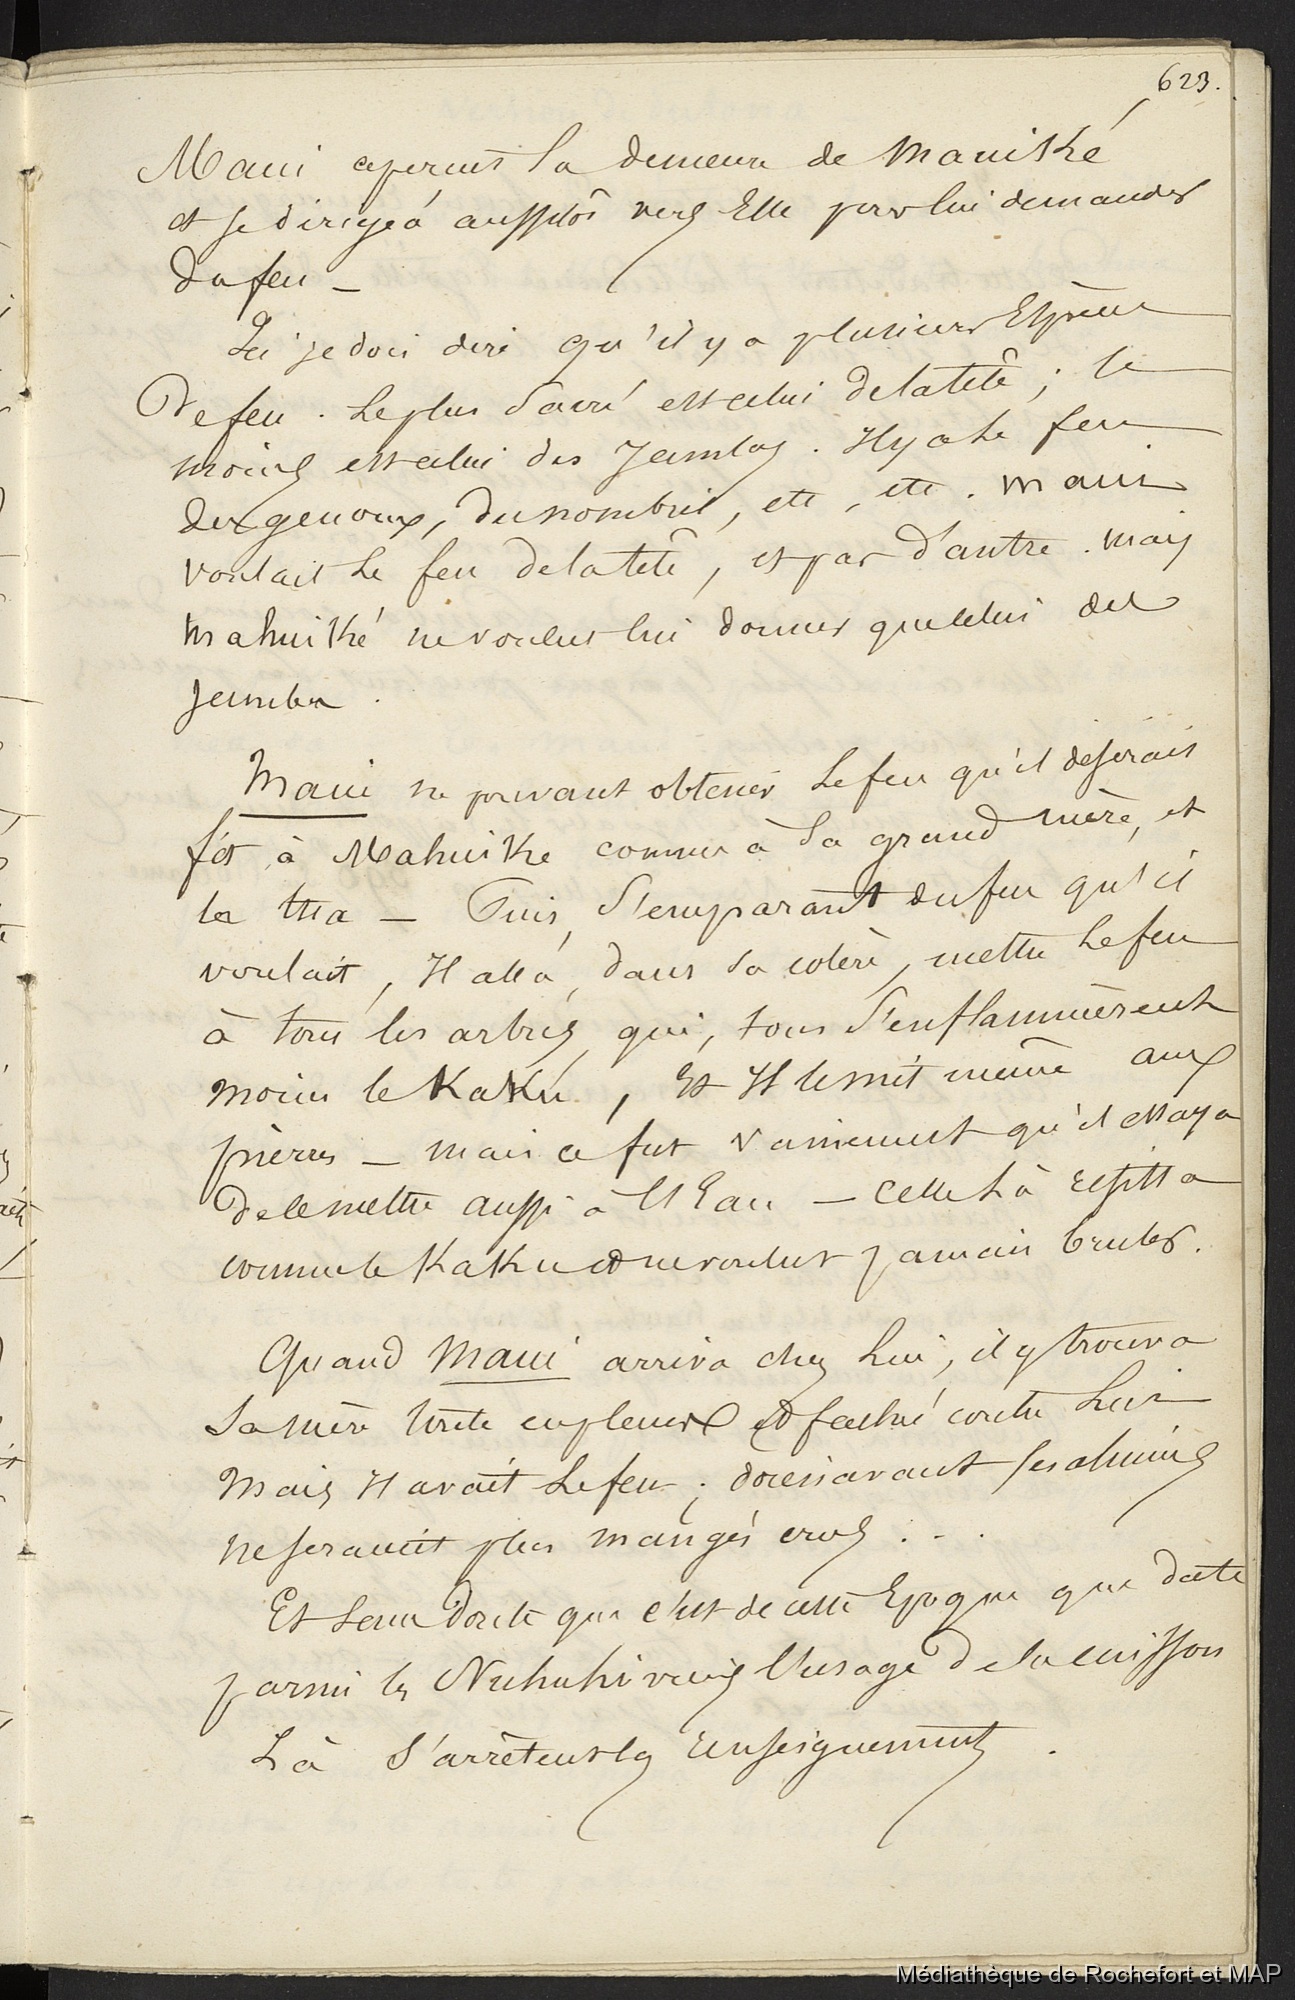 623.
Maui aperçut la demeure de Mauiké
et se dirigeá aussitôt vers Elle pour lui demander
du feu _
Ici je dois dire qu'il y a plusieurs Espèces
De feu. Le plus Sacré est celui de la tête ; le
moins est celui des Jambes. Il y a le feu
des genoux, du nombril, etc, etc. Maui
voulait le feu de la tête, et pas d'autre. mais
Mahuiké ne voulut lui donner que celui des
Jambes.
Maui ne pouvant obtenir le feu qu'il désirait
fit à Mahuike comme à Sa grand mère, et
la tua — Puis, S'emparant du feu qu'il
voulait, Il alla, dans sa colère, mettre le feu
à tous les arbres qui, tous S'enflammèrent
moins le KaKu, Et Il le mit même aux
pierres _ mais ce fut vainement qu'il essaya
de le mettre aussi à l'Eau — Celle là résista
comme le KaKu et ne voulut jamais bruler.
Quand Maui arriva chez Lui, il y trouva
Sa mère toute en pleurs et fachée contre Lui
Mais Il avait le feu ; dorénavant ses aliments
ne seraient plus mangés crus . . .
Et Sans Doute que c'est de cette Epoque que date
parmi les Nuhuhiviens l'usage De la cuisson
Là S'arrêtent les renseignements .
Médiathèque de Rochefort et MAP